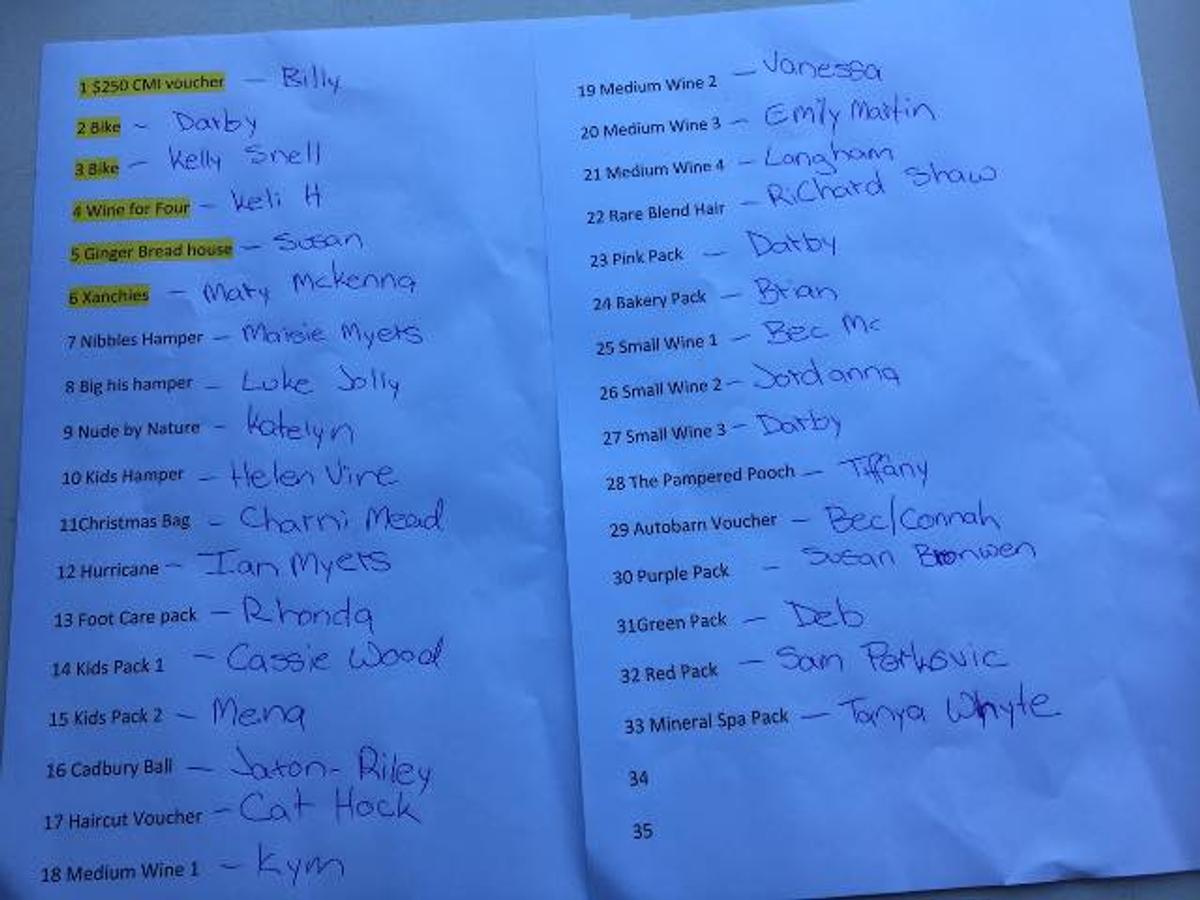 1 $250 CMI voucher - Billy
2 Bike - Darby
3 Bike - Kelly Snell
4 Wine for Four - Keli H
5 Ginger Bread house - Susan
6 Xanchies - Mary McKenna
7 Nibbles Hamper - Maisie Myers
8 Big his hamper - Luke Jolly
9 Nude by Nature - Katelyn
10 Kids Hamper - Helen Vine
11Christmas Bag - Charni Mead
12 Hurricane - Ian Myers
13 Foot Care pack - Rhonda
14 Kids Pack 1 - Cassie Wood
15 Kids Pack 2 - Mena
16 Cadbury Ball - Jaron-Riley
17 Haircut Voucher - Cat Hock
18 Medium Wine 1 - Kym
19 Medium Wine 2 - Vanessa
20 Medium Wine 3 - Emily Martin
21 Medium Wine 4 - Langham
22 Rare Blend Hair - Richard Shaw
23 Pink Pack - Darby
24 Bakery Pack - Brian
25 Small Wine 1 - Bec Mc
26 Small Wine 2 - Jordanna
27 Small Wine 3 - Darby
28 The Pampered Pooch - Tiffany
29 Autobarn Voucher - Bec/Connah
30 Purple Pack - Susan Bronwen
31Green Pack - Deb
32 Red Pack - Sam Perkovic
33 Mineral Spa Pack - Tanya Whyte
34
35